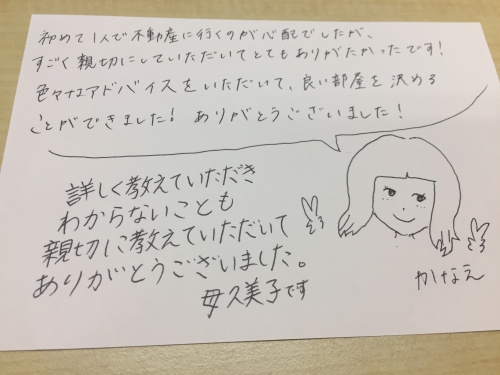 初めて1人で不動産に行くのが心配でしたが、
すごく親切にしていただいてとてもありがたかったです！
色々なアドバイスをいただいて、良い部屋を決める
ことができました！ ありがとうございました！
詳しく教えていただき
わからないことも
親切に教えていただいて
ありがとうございました。
母久美子です
かなえ